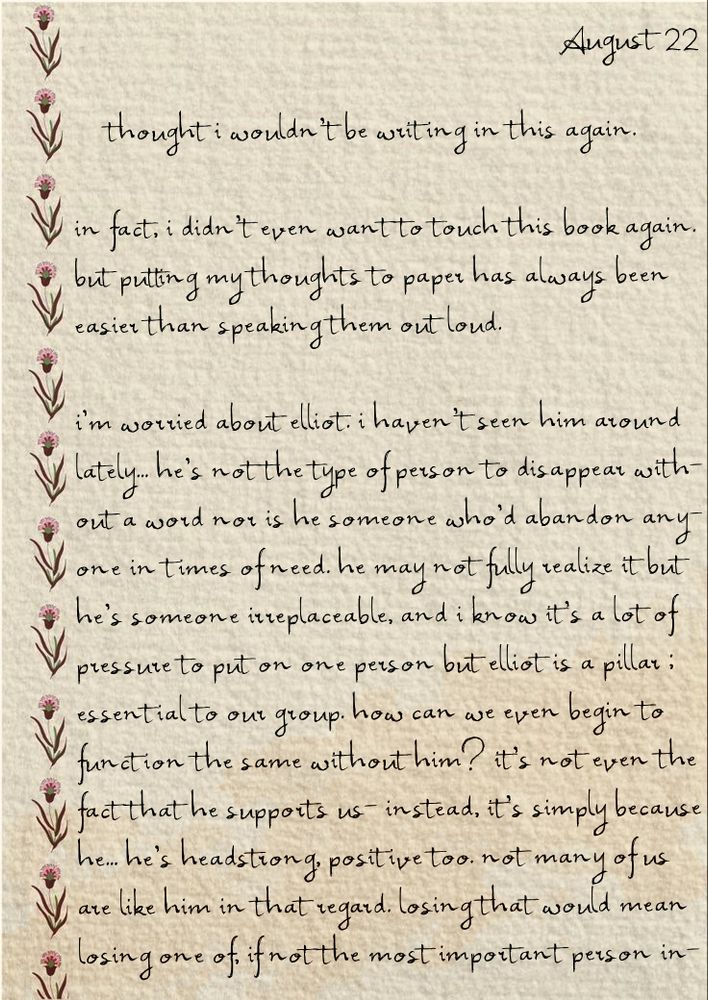 August 22
thought i wouldn't be writing in this again.
in fact, i didn't even want to touch this book again.
but putting my thoughts to paper has always been
easier than speaking them out loud.
i'm worried about elliot. i haven't seen him around
lately... he's not the type of person to disappear with-
out a word nor is he someone who'd abandon any-
one in times of need. he may not fully realize it but
he's someone irreplaceable, and i know it's a lot of
pressure to put on one person but elliot is a pillar ;
essential to our group. how can we even begin to
function the same without him? it's not even the
fact that he supports us- instead, it's simply because
he... he's headstrong, positive too. not many of us
are like him in that regard. losing that would mean
losing one of, if not the most important person in-